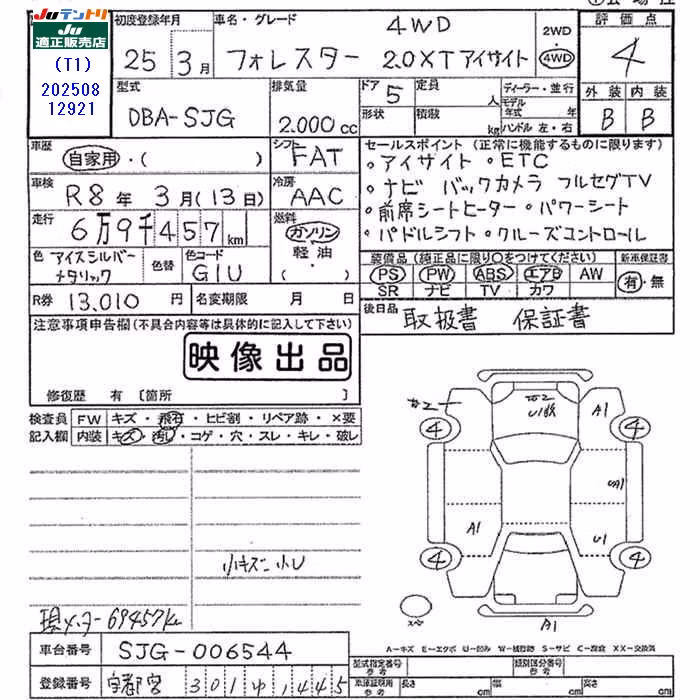 JUテントリ
JU
適正販売店
(T1)
202508
12921
初度登録年月
25年3月
車名・グレード
4WD
フォレスター 2.0XT アイサイト
2WD
4WD
評価点
4
外装 内装
B B
型式
DBA-SJG
排気量
2.000cc
ドア 5
定員 人
形状
積載 kg
ディーラー・並行
モデル年式 年
ハンドル 左・右
車歴
自家用・( )
シフト
FAT
車検
R8年 3月(13日)
冷房
AAC
走行
6万9千457km
燃料
ガソリン
軽油
( )
色 アイスシルバー
メタリック
色替
色コード
G1U
R券 13,010円
名変期限 月 日
セールスポイント (正常に機能するものに限ります)
・アイサイト ・ETC
・ナビ バックカメラ フルセグTV
・前席シートヒーター ・パワーシート
・パドルシフト ・クルーズコントロール
装備品(純正品に限り○をつけてください)
新車保証書
PS PW ABS エアB AW
SR ナビ TV カワ
有・無
後日品 取扱書 保証書
注意事項申告欄(不具合内容等は具体的に記入して下さい)
映像出品
修復歴 有 [箇所 ]
検査員
記入欄
FW キズ・飛石・ヒビ割・リペア跡・×要
内装 キズ・汚レ・コゲ・穴・スレ・キレ・破レ
小キズ 小U
現メーター69457km
A1
A1
U1
A1
4
4
4
4
A-キズ E-エクボ U-凹み W-補修跡 S-サビ C-腐食 XX-交換済
車台番号 SJG-006544
登録番号 宇都宮 301ゆ1445
型式指定番号
参考
類別区分番号
参考
車庫証明用
参考
長さ cm
幅 cm
高さ cm